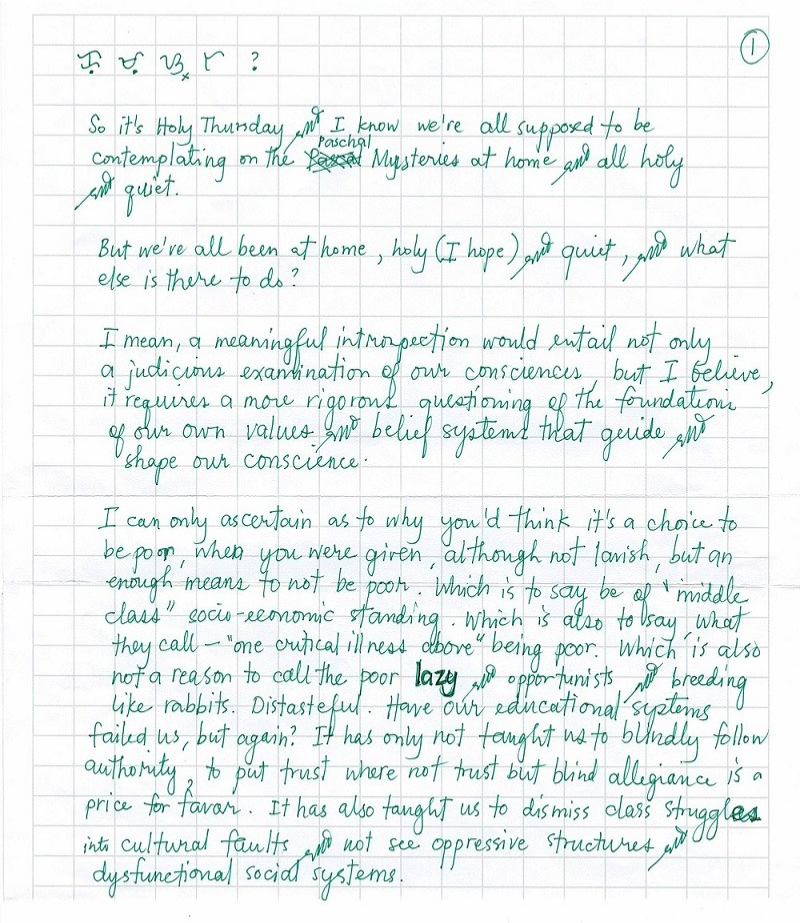 1
?
So it's Holy Thursday and I know we're all supposed to be
contemplating on the Paschal Mysteries at home and all holy
and quiet.
But we've all been at home, holy (I hope) and quiet, and what
else is there to do?
I mean, a meaningful introspection would entail not only
a judicious examination of our consciences, but I believe,
it requires a more rigorous questioning of the foundations
of our own values and belief systems that guide and
shape our conscience.
I can only ascertain as to why you'd think it's a choice to
be poor, when you were given, although not lavish, but an
enough means to not be poor. Which is to say be of "middle
class" socio-economic standing. Which is also to say, what
they call — "one critical illness above" being poor. Which is also
not a reason to call the poor lazy and opportunists and breeding
like rabbits. Distasteful. Have our educational systems
failed us, but again? It has only not taught us to blindly follow
authority, to put trust where not trust but blind allegiance is a
price for favor. It has also taught us to dismiss class struggles
into cultural faults and not see oppressive structures and
dysfunctional social systems.